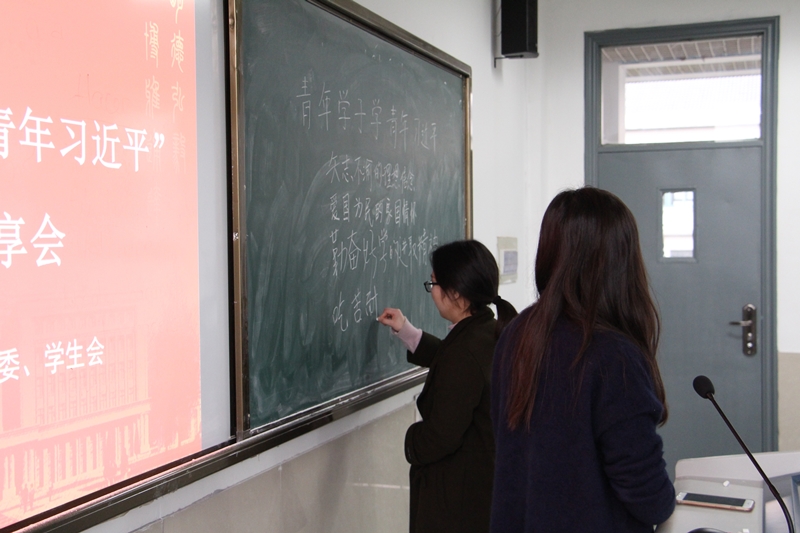 青年习近平”
享会
委、学生会
青年学子学青年习近平
矢志不渝的理想信念
爱国为民的家国情怀
勤奋好学的进取精神
吃苦耐